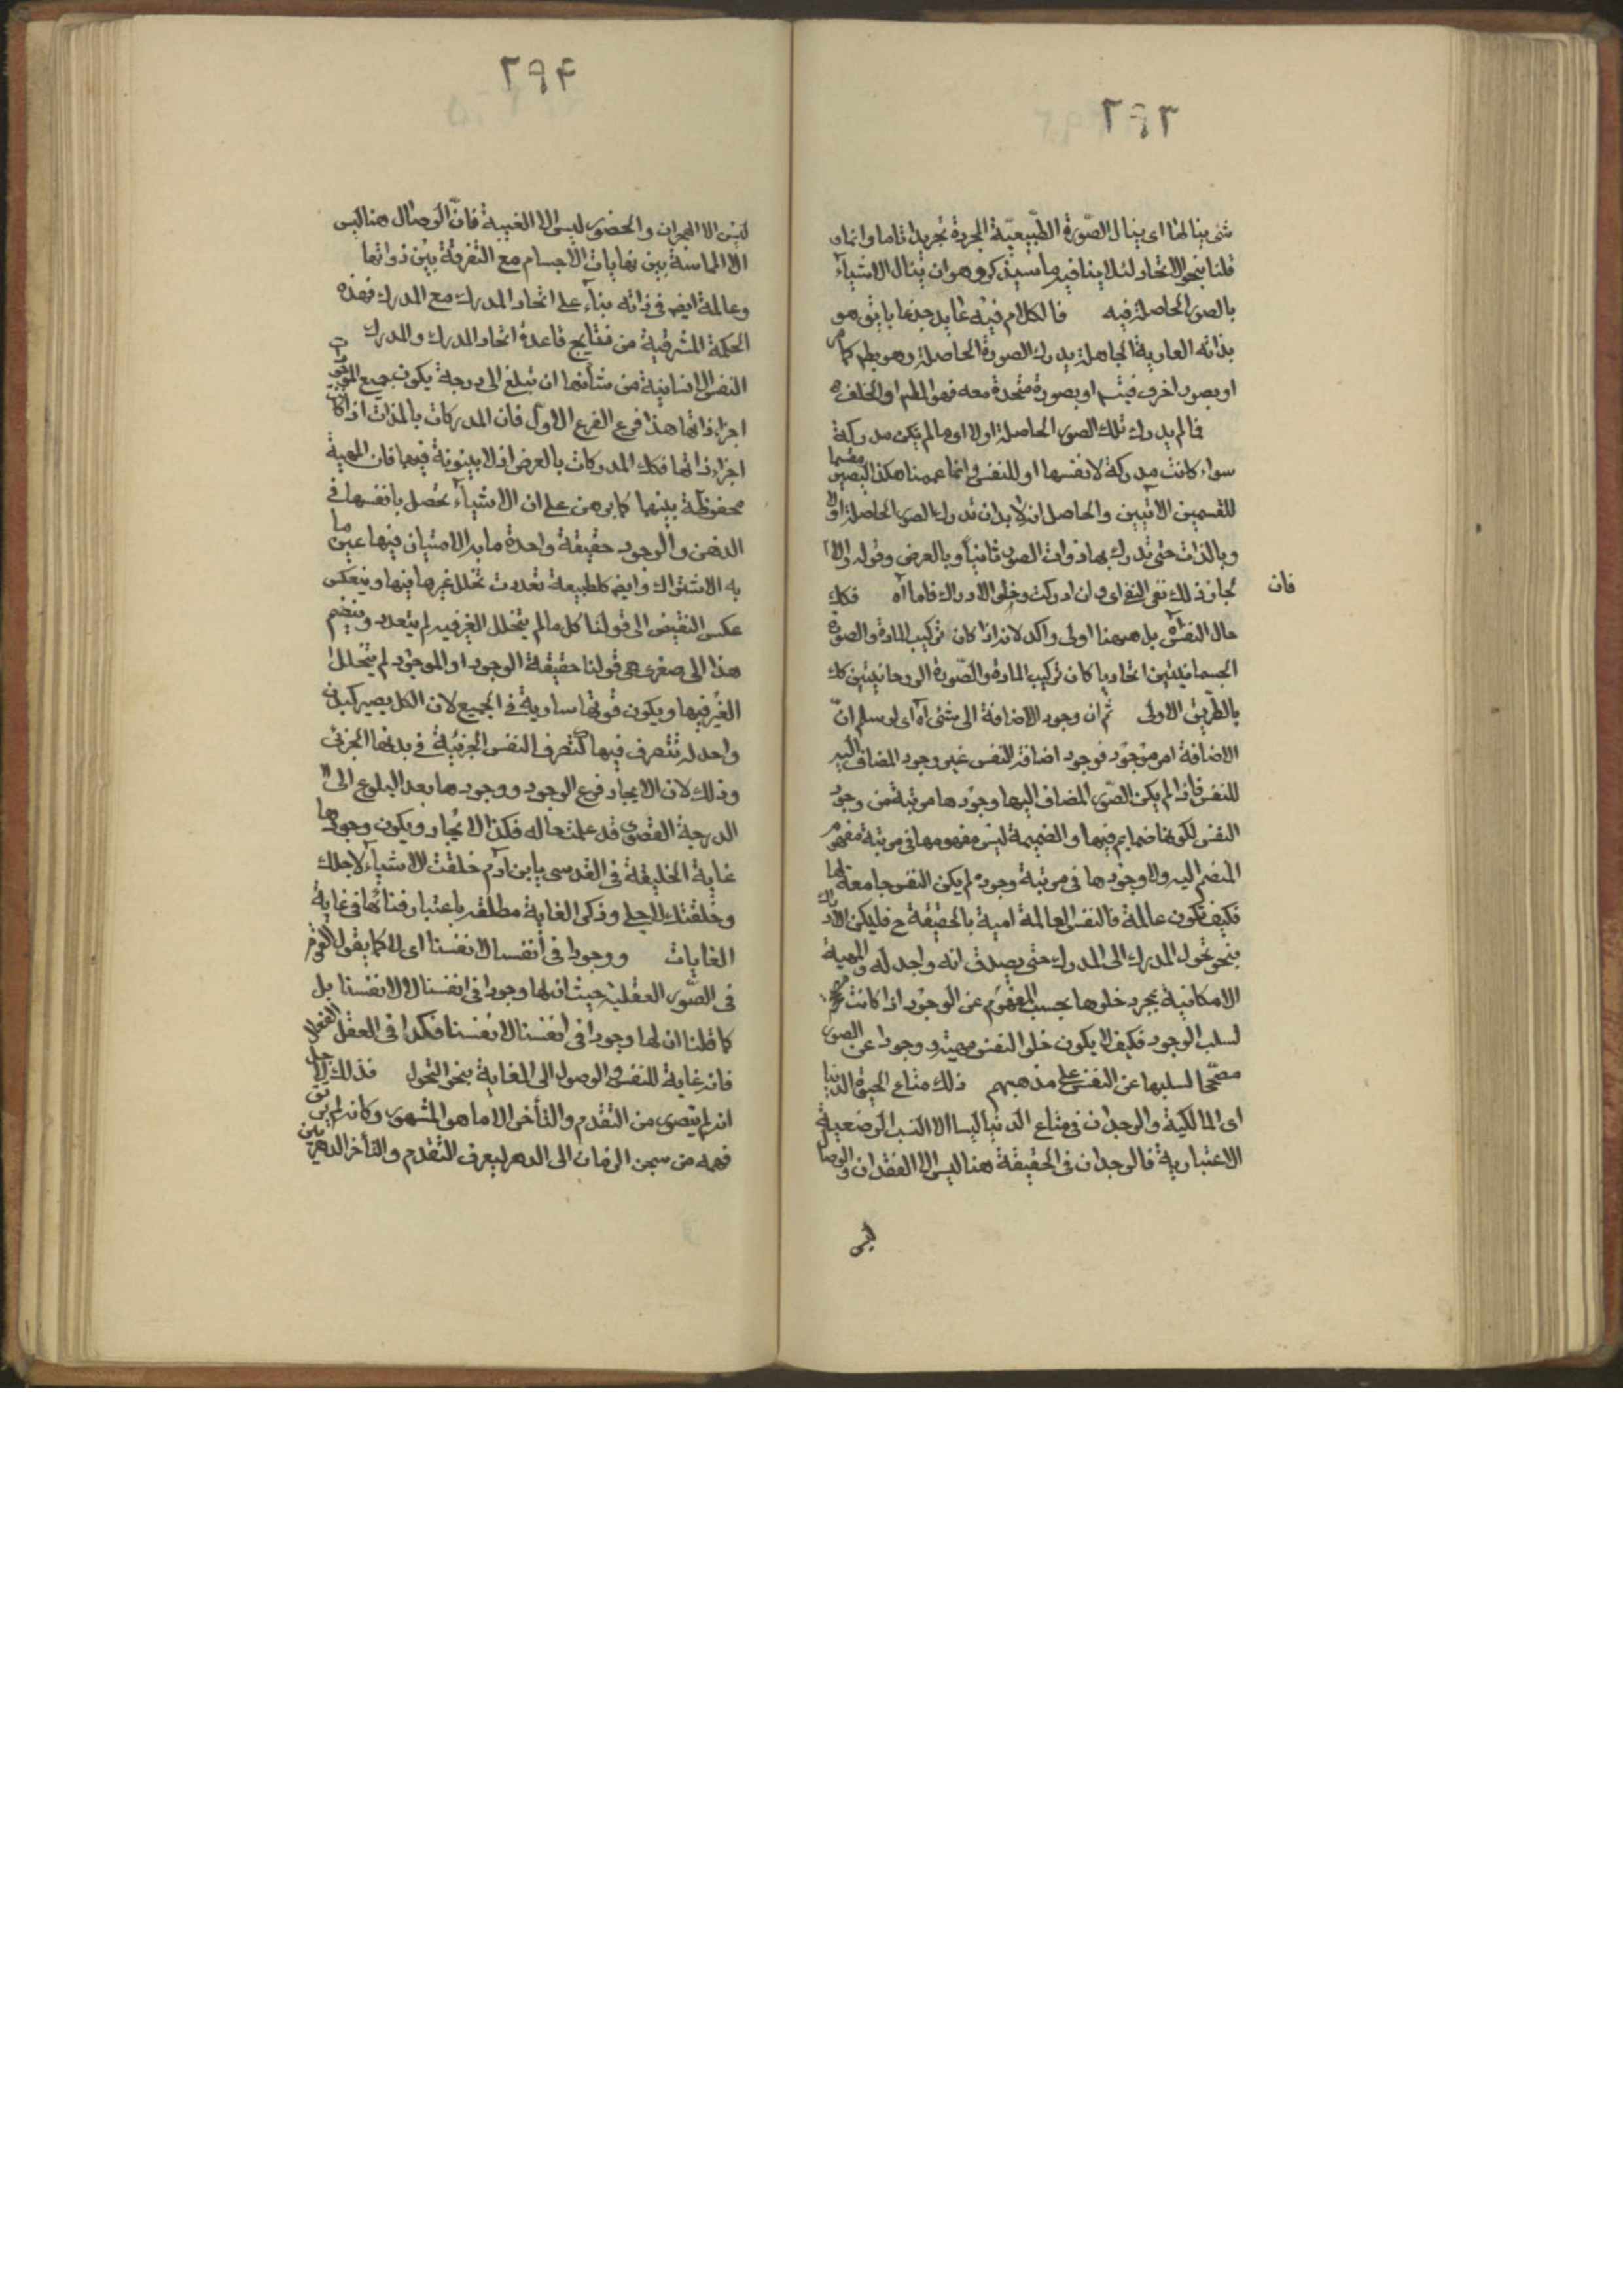 ٢٩٣
شئ ينالها اى ينال الصّورة الطّبيعيّة المجردة تجريدا تاما وانما
قلنا بنحو الاتحاد لئلا ينافيه ما سيذكره وهو ان ينال الاشياء
بالصور الحاصلة فيه فالكلام فيه عايد جذعا باى هو
بذاته العارية الجاهلة يدرك الصورة الحاصلة وهو بط كما مر
او بصور اخرى فيتم او بصورة متحدة معه فهو المط او الخلف
فالم يدرك تلك الصور الحاصلة اولا اى ما لم يكن مدركة
سواء كانت مدركة لانفسها او للنفس وانما عممنا هكذا ليصير مقسما
للقسمين الآتيين والحاصل انه لابد ان تدرك الصور الحاصلة اولا
وبالذات حتى تدرك بها ذوات الصور ثانيا وبالعرض وقوله والا
لجاز ذلك نفى النفى اى وان ادركت وخلى الادراك فاما آه فكك
فان
حال النفس آه بل هيهنا اولى واكد لانه اذا كان تركيب المادة والصورة
الجسمانيتين اتحاديا كان تركيب المادة والصّورة الروحانيتين كك
بالطّريق الاولى ثم ان وجود الاضافة الى شئ آه اى لو سلم انّ
الاضافة امر موجود فوجود اضافة للنفس غير وجود المضاف اليه
للنفس فاذا لم يكن الصّور المضاف اليها وجودها مرتبة من وجود
النفس لكونها ضمايم فيها والضميمة ليس مفهومها فى مرتبة مفهوم
المنضم اليه ولا وجودها فى مرتبة وجوده لم يكن النفس جامعة لها
فكيف تكون عالمة فالنفس العالمة امية بالحقيقة ح فليكن الادراك
بنحو تحول المدرك الى المدرك حتى يصدق انه واجد له والمهية
الامكانية بمجرد خلوها بحسب المفهوم عن الوجود اذا كانت
لسلب الوجود فكيف لا يكون خلو النفس مهية ووجودا عن الصور
مصحّحا لسلبها عن النفس على مذهبهم ذلك متاع الحيوة الدنيا
اى المالكية والوجدان فى متاع الدنيا ليسا الا النسب الوضعية
الاعتبارية فالوجدان فى الحقيقة هنا ليس الا الفقدان والوصال
ليس
٢٩۴
ليس الا الهجران والحضور ليس الا الغيبة فانّ الوصال هنا ليس
الا المماسة بين نهايات الاجسام مع التفرقة بين ذواتها
وعالمة ايضه فى ذاته بناء على اتحاد المدرك مع المدرك فهذه
الحكمة المشرقية من نتايج قاعدة اتحاد المدرك والمدرك
النفس الانسانية من شأنها ان تبلغ الى درجة يكون جميع الموجودات
اجزاء ذاتها هذا فرع الفرع الاول فان المدركات بالذات اذا كانت
اجزاء ذاتها فكك المدركات بالعرض اذ لا بينونة فيهما فان المهية
محفوظة بينهما كما برهن على ان الاشياء تحصل بانفسها فى
الذهن والوجود حقيقة واحدة ما به الامتياز فيها عين ما
به الاشتراك وايضه كل طبيعة تعددت تخلل غيرها فيها وينعكس
عكس النقيض الى قولنا كل ما لم يتخلل الغير فيه لم يتعدد وينضم
هذا الى صغرى هى قولنا حقيقة الوجود او الموجود لم يتخلل
الغير فيها ويكون قوتها سارية فى الجميع لان الكل يصير كبدن
واحد له تتصرف فيها كتصرف النفس الجزئية فى بدنها الجزئى
وذلك لان الايجاد فرع الوجود ووجودها بعد البلوغ الى
الدرجة القصوى قد علمت حاله فكذا الايجاد ويكون وجودها
غاية الخليقة فى القدسى يابن آدم خلقت الاشياء لاجلك
وخلقتك لاجلى وذكر الغاية مطلقه باعتبار فنائها فى غاية
الغايات ووجودا فى أنفسنا لا نفسنا اى لا كما يقول القوم
فى الصّور العقلية حيث ان لها وجودا فى انفسنا لا لانفسنا بل
كما قلنا ان لها وجودا فى أنفسنا لانفسنا فكذا فى العقل الفعال
فانه غاية للنفس والوصول الى الغاية بنحو التحول فذلك لاجل
انه لم يتصور من التقدم والتأخر الا ما هو المشهور وكانه لم يرتق
فهمه من سجن الزمان الى الدهر ليعرف التقدم والتأخر الدهريين